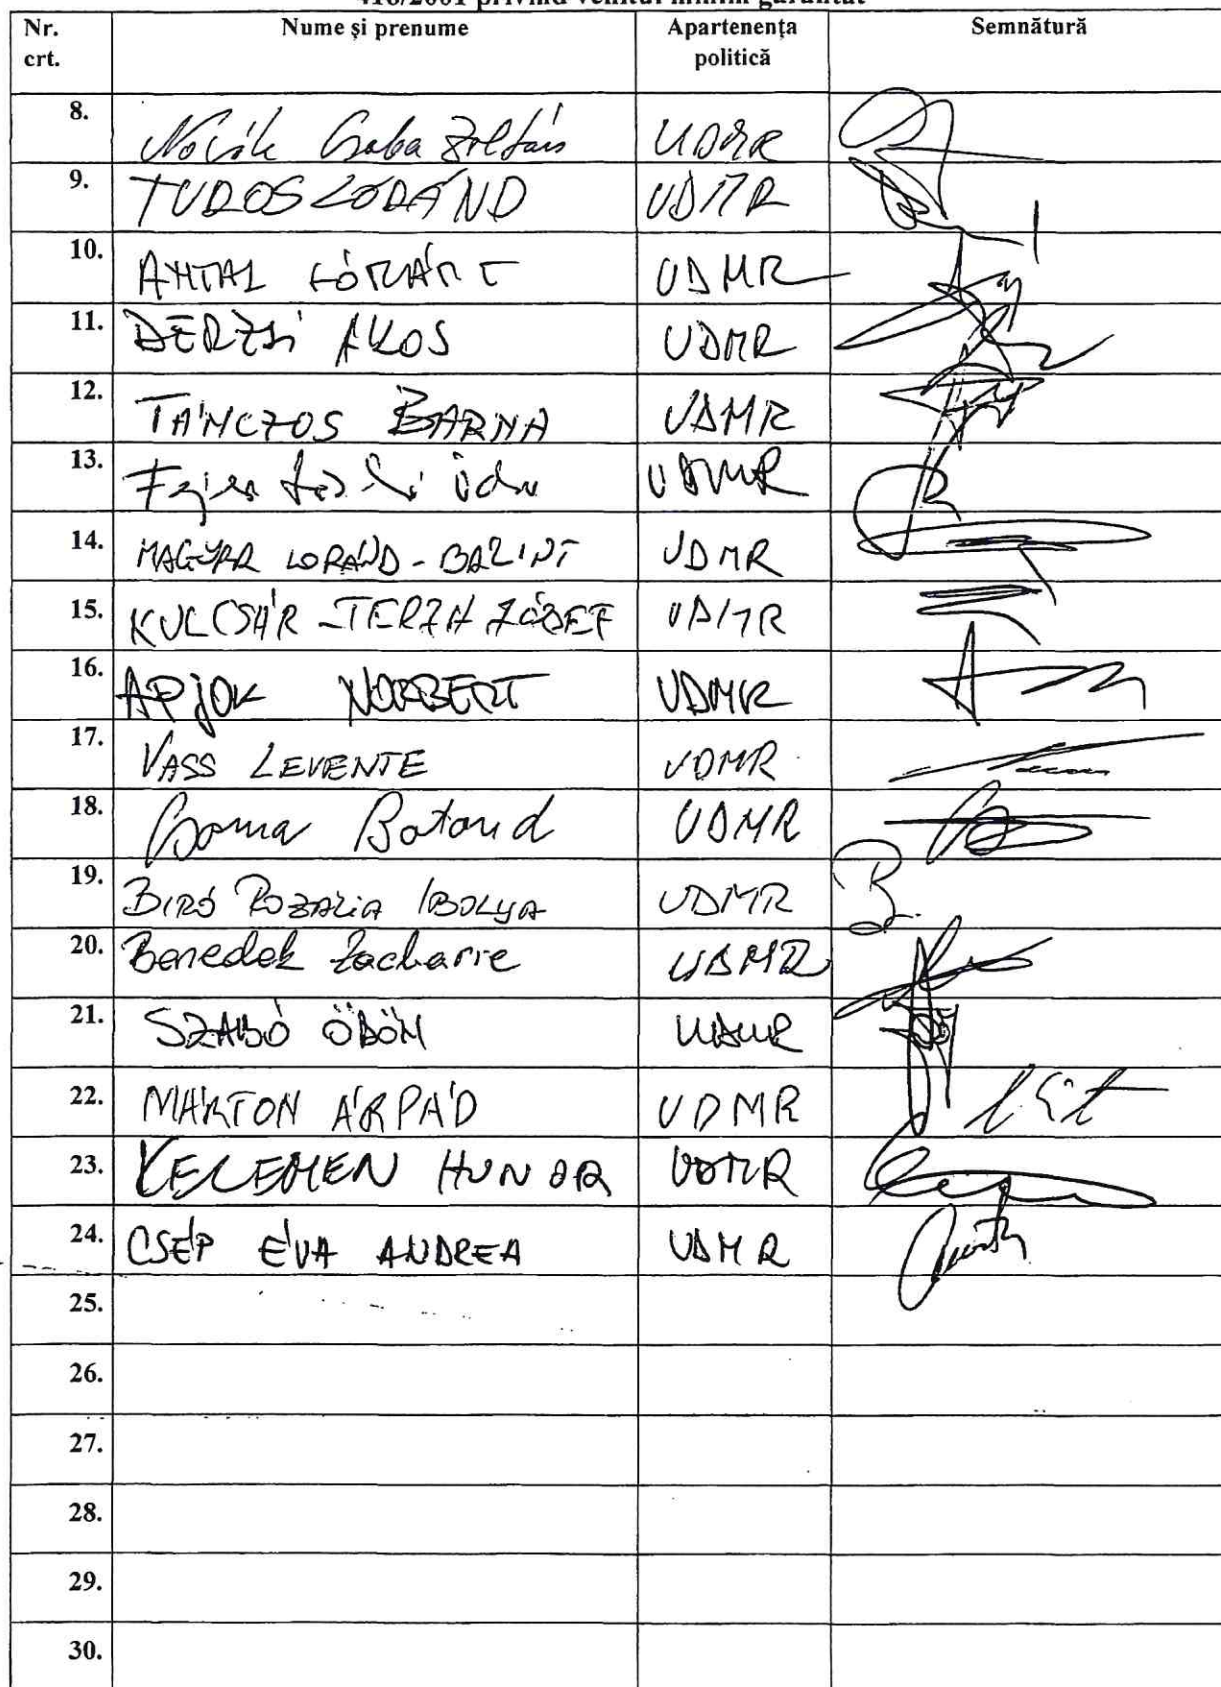 416/2001 privind venitul minim garantat
Nr. crt. Nume și prenume Apartenența politică Semnătură
8. Novák Csaba Zoltán UDMR
9. TUDOS LÓRÁND UDMR
10. ANTAL LÓRÁNT UDMR
11. DERZSI ÁKOS UDMR
12. TÁNCZOS BARNA UDMR
13. Fejér László Ödön UDMR
14. MAGYAR LORÁND-BÁLINT UDMR
15. KULCSÁR-TERZA JÓZSEF UDMR
16. APJOK NORBERT UDMR
17. VASS LEVENTE UDMR
18. Csoma Botond UDMR
19. BIRÓ ROZÁLIA IBOLYA UDMR
20. Benedek Zacharie UDMR
21. SZABÓ ÖDÖN UDMR
22. MÁRTON ÁRPÁD UDMR
23. KELEMEN HUNOR UDMR
24. CSÉP ÉVA ANDREA UDMR
25.
26.
27.
28.
29.
30.